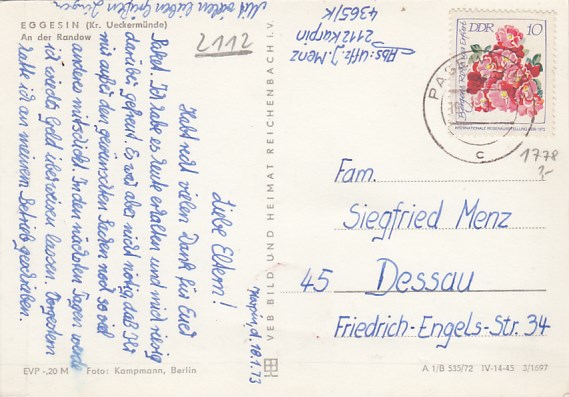 EGGESIN (Kr. Ueckermünde)
An der Randow
2112
Abs: Uffz. J. Menz
2112 Karpin
4365/K
DDR 10
INTERNATIONALE ROSENAUSSTELLUNG 1972
PAS
c
1778
Karpin, d. 18.1.73
Liebe Eltern!
Habt recht vielen Dank für Euer
Paket. Ich habe es heute erhalten und mich riesig
darüber gefreut. Es war aber nicht nötig, daß Ihr
mir außer den gewünschten Sachen noch so viel
anderes mitschickt. In den nächsten Tagen werde
ich wieder Geld überweisen lassen. Vorgestern
habe ich an meinem Betrieb geschrieben.
Mit vielen lieben Grüßen Jürgen
VEB BILD UND HEIMAT REICHENBACH I. V.
Fam.
Siegfried Menz
45 Dessau
Friedrich-Engels-Str. 34
EVP -,20 M Foto: Kampmann, Berlin
A 1/B 535/72 IV-14-45 3/1697